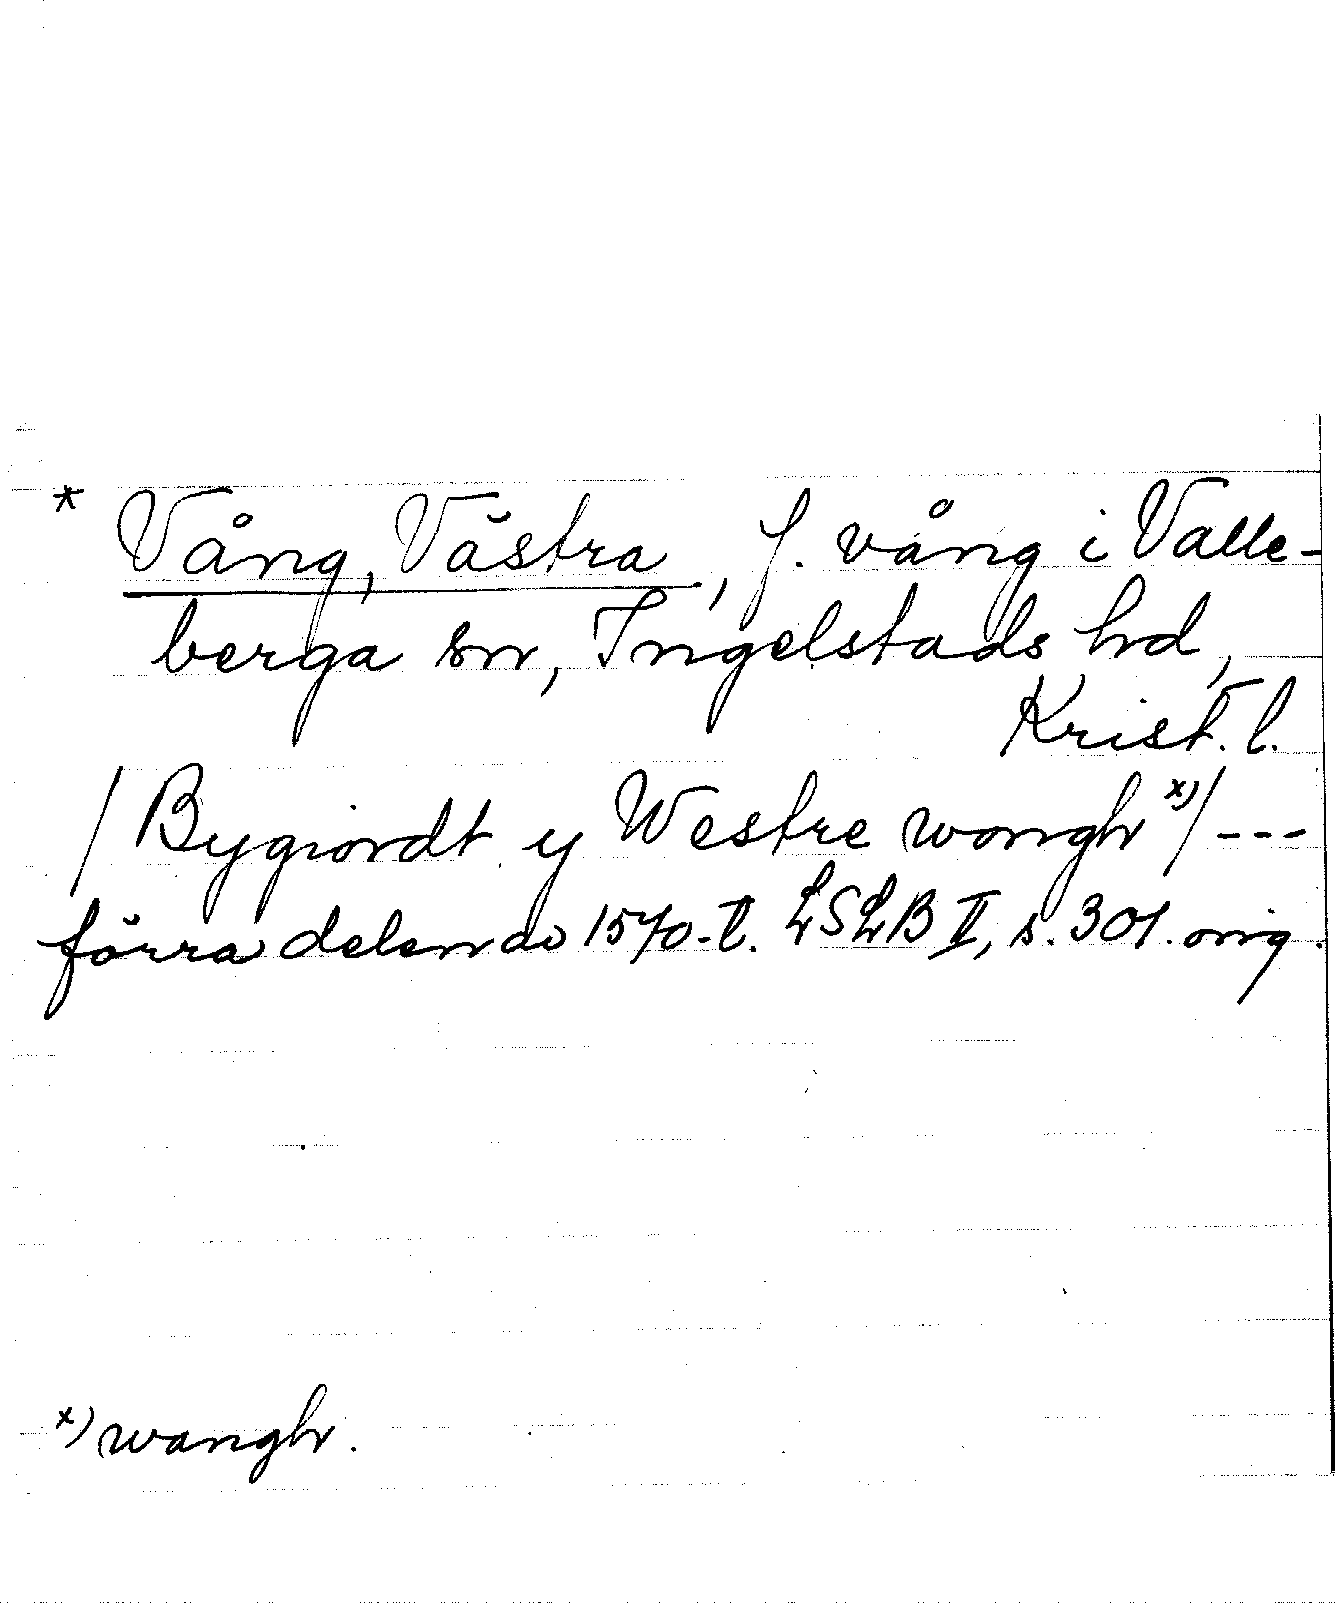 * Vång, Västra, f. vång i Valle-
berga sn, Ingelstads hd,
Krist. l.
/ Bygiordt y Westre wongh x) / ---
förra delen av 1570-t. LSLB II, s. 301. orig.
x) wangh.